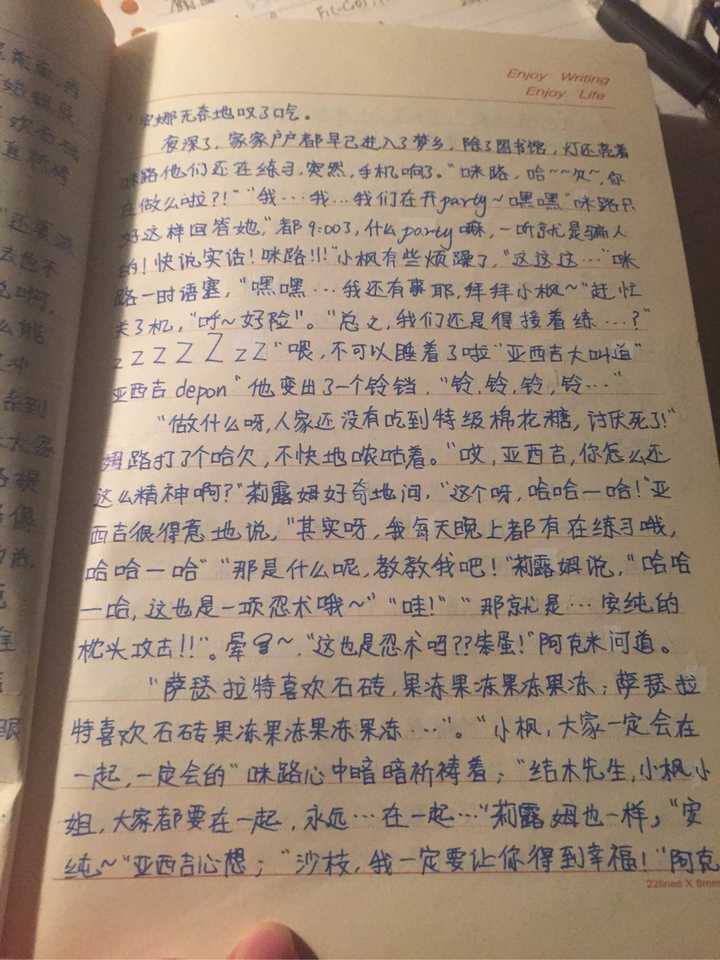 Enjoy Writing
Enjoy Life
安娜无奈地叹了口气。
夜深了，家家户户都早已进入了梦乡，除了图书馆，灯还亮着
咪路他们还在练习，突然，手机响了。“咪路，哈~~欠~，你
在做么啦？！”“我…我…我们在开party~嘿嘿”咪路只
好这样回答她，“都9:00了，什么party嘛，一听就是骗人
的！快说实话！咪路！！！”小枫有些烦躁了，“这这这…”咪
路一时语塞，“嘿嘿…我还有事耶，拜拜小枫~”赶忙
关了机，“呼~好险”。“总之，我们还是得接着练…？”
zzZZZzzZ“喂，不可以睡着了啦”亚西吉大叫道”
亚西吉depon”他变出了一个铃铛，“铃，铃，铃，铃…”
“做什么呀，人家还没有吃到特级棉花糖，讨厌死了！”
姆路打了个哈欠，不快地哝咕着。“哎，亚西吉，你怎么还
这么精神啊？”莉露姆好奇地问，“这个呀，哈哈一哈！”亚
西吉很得意地说，“其实呀，我每天晚上都有在练习哦，
哈哈一哈”“那是什么呢，教教我吧！”莉露姆说，“哈哈
一哈，这也是一项忍术哦~”“哇！”“那就是…安纯的
枕头攻击！！”。晕~，“这也是忍术吗？？笨蛋！”阿克米问道。
“萨瑟拉特喜欢石砖，果冻果冻果冻果冻；萨瑟拉
特喜欢石砖果冻果冻果冻果冻…”。“小枫，大家一定会在
一起，一定会的”咪路心中暗暗祈祷着；“结木先生，小枫小
姐，大家都要在一起，永远…在一起…”莉露姆也一样，“安
纯~”亚西吉心想；“沙枝，我一定要让你得到幸福！”阿克
22lines X 9mm